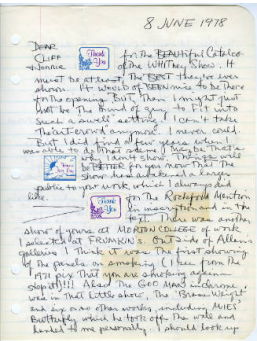 8 JUNE 1978
DEAR
CLIFF
Thank You
for the BEAUTIFUL Catalog
of the WHITNEY Show. It
must be at least, the BEST they've ever
shown. It WOULD OF BEEN nice to be there
for the opening. But, then I might just
not be the kind of guy to fit into
such a swell setting. I can't take
the art crowd anymore. I never could.
But I did find a few years when I was
able to
I don't know. Things will
be BETTER for you now that the
show has awakened a larger
public to your work, which I always did
like.
Thank You
for the Rockford Mention
in inscription and in the
text. There was another
show of yours at MORTON COLLEGE of work
I selected at FRUMKINS. Outside of Allans
galleries I think it was the first showing
of the panels on smoking (I hear from the
1971 pieces that you are smoking again—
stop it)!!! Also The GOD MAN
was in that little show, The
and six or so other works, including MIES'
Butterfly which he took off the wall and
handed to me personally. I should look up